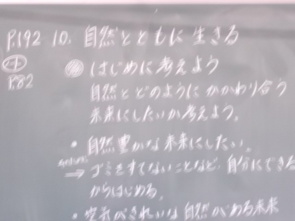 P.192 10. 自然とともに生きる
はじめに考えよう
P.82
自然とどのようにかかわり合う
未来にしたいか考えよう。
・自然豊かな未来にしたい。
→ゴミをすてないことなど、自分にできる
からはじめる。
・空気がきれいな自然がある未来